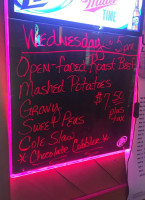 Miller
TIME
Wednesday 5pm
Open-faced Roast Beef
Mashed Potatoes
Gravy $7.50
Sweet Peas Plus
Cole Slaw Tax
* Chocolate Cobbler *